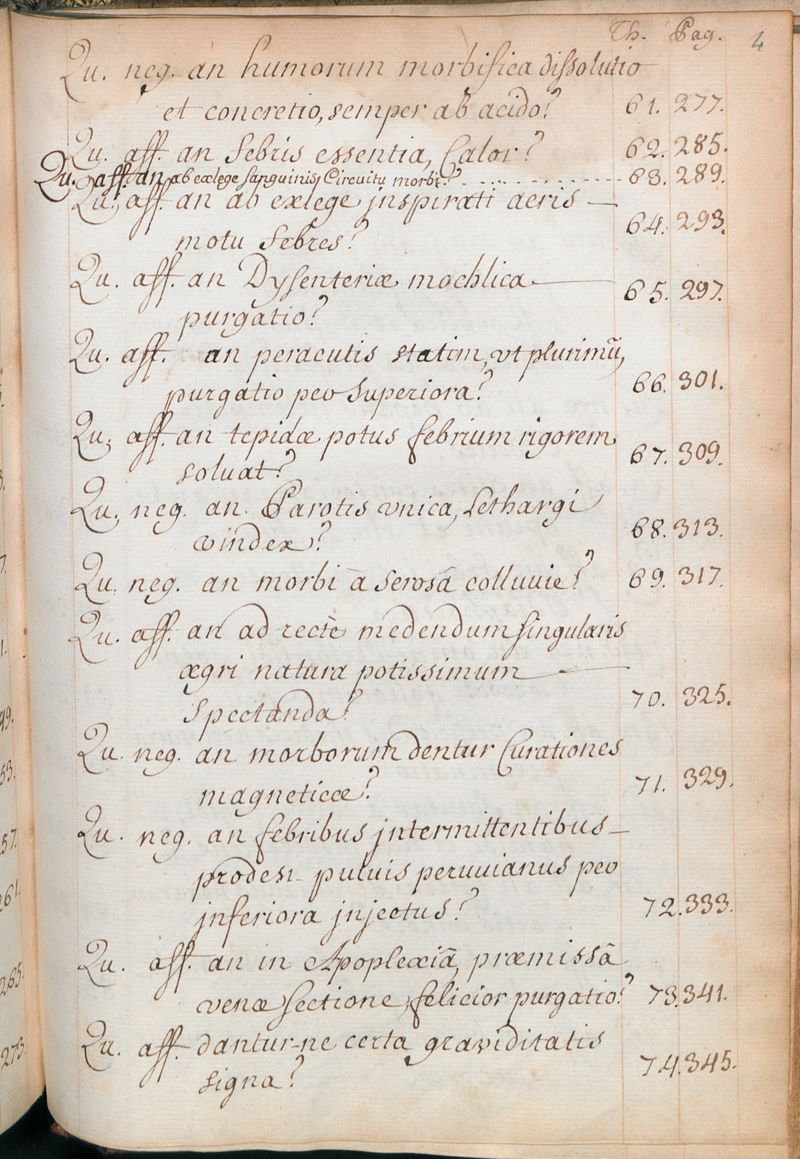 Th. Pag. 4
Qu. neg. an humorum morbifica dissolutio
et concretio, semper ab acido? 61. 277.
Qu. aff. an febris essentia, Calor? 62. 285.
Qu. aff. an ab exlege sanguinis Circuitu morbi? 63. 289.
Qu. aff. an ab exlege jnspirati aeris
motu febres? 64. 293.
Qu. aff. an Dysenteriæ mochlica
purgatio? 65. 297.
Qu. aff. an peracutis statim, vt plurimũ,
purgatio per superiora? 66. 301.
Qu. aff. an tepidæ potus febrium rigorem
soluat? 67. 309.
Qu. neg. an Parotis vnica, Lethargi
vindex? 68. 313.
Qu. neg. an morbi â serosâ colluuie? 69. 317.
Qu. aff. an ad rectè medendum singularis
ægri natura potissimum
spectanda? 70. 325.
Qu. neg. an morborum dentur Curationes
magneticæ? 71. 329.
Qu. neg. an febribus jntermittentibus
prodest puluis peruuianus per
jnferiora jnjectus? 72. 333.
Qu. aff. an in Apoplexiâ, præmissâ
venæ sectione, felicior purgatio? 73. 341.
Qu. aff. dantur-ne certa graviditatis
signa? 74. 345.
49.
53.
57.
261.
265.
273.